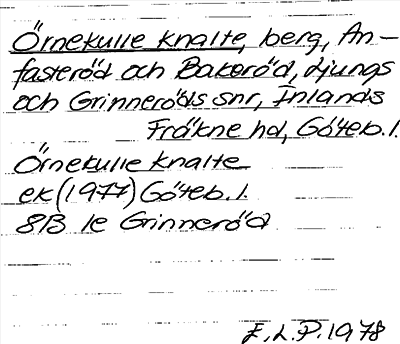 Örnekulle knalte, berg, An-
fasteröd och Bakeröd, Ljungs
och Grinneröds snr, Inlands
Fräkne hd, Göteb.l.
Örnekulle knalte
ek (1977) Göteb.l.
8B 1e Grinneröd
E.L.P. 1978